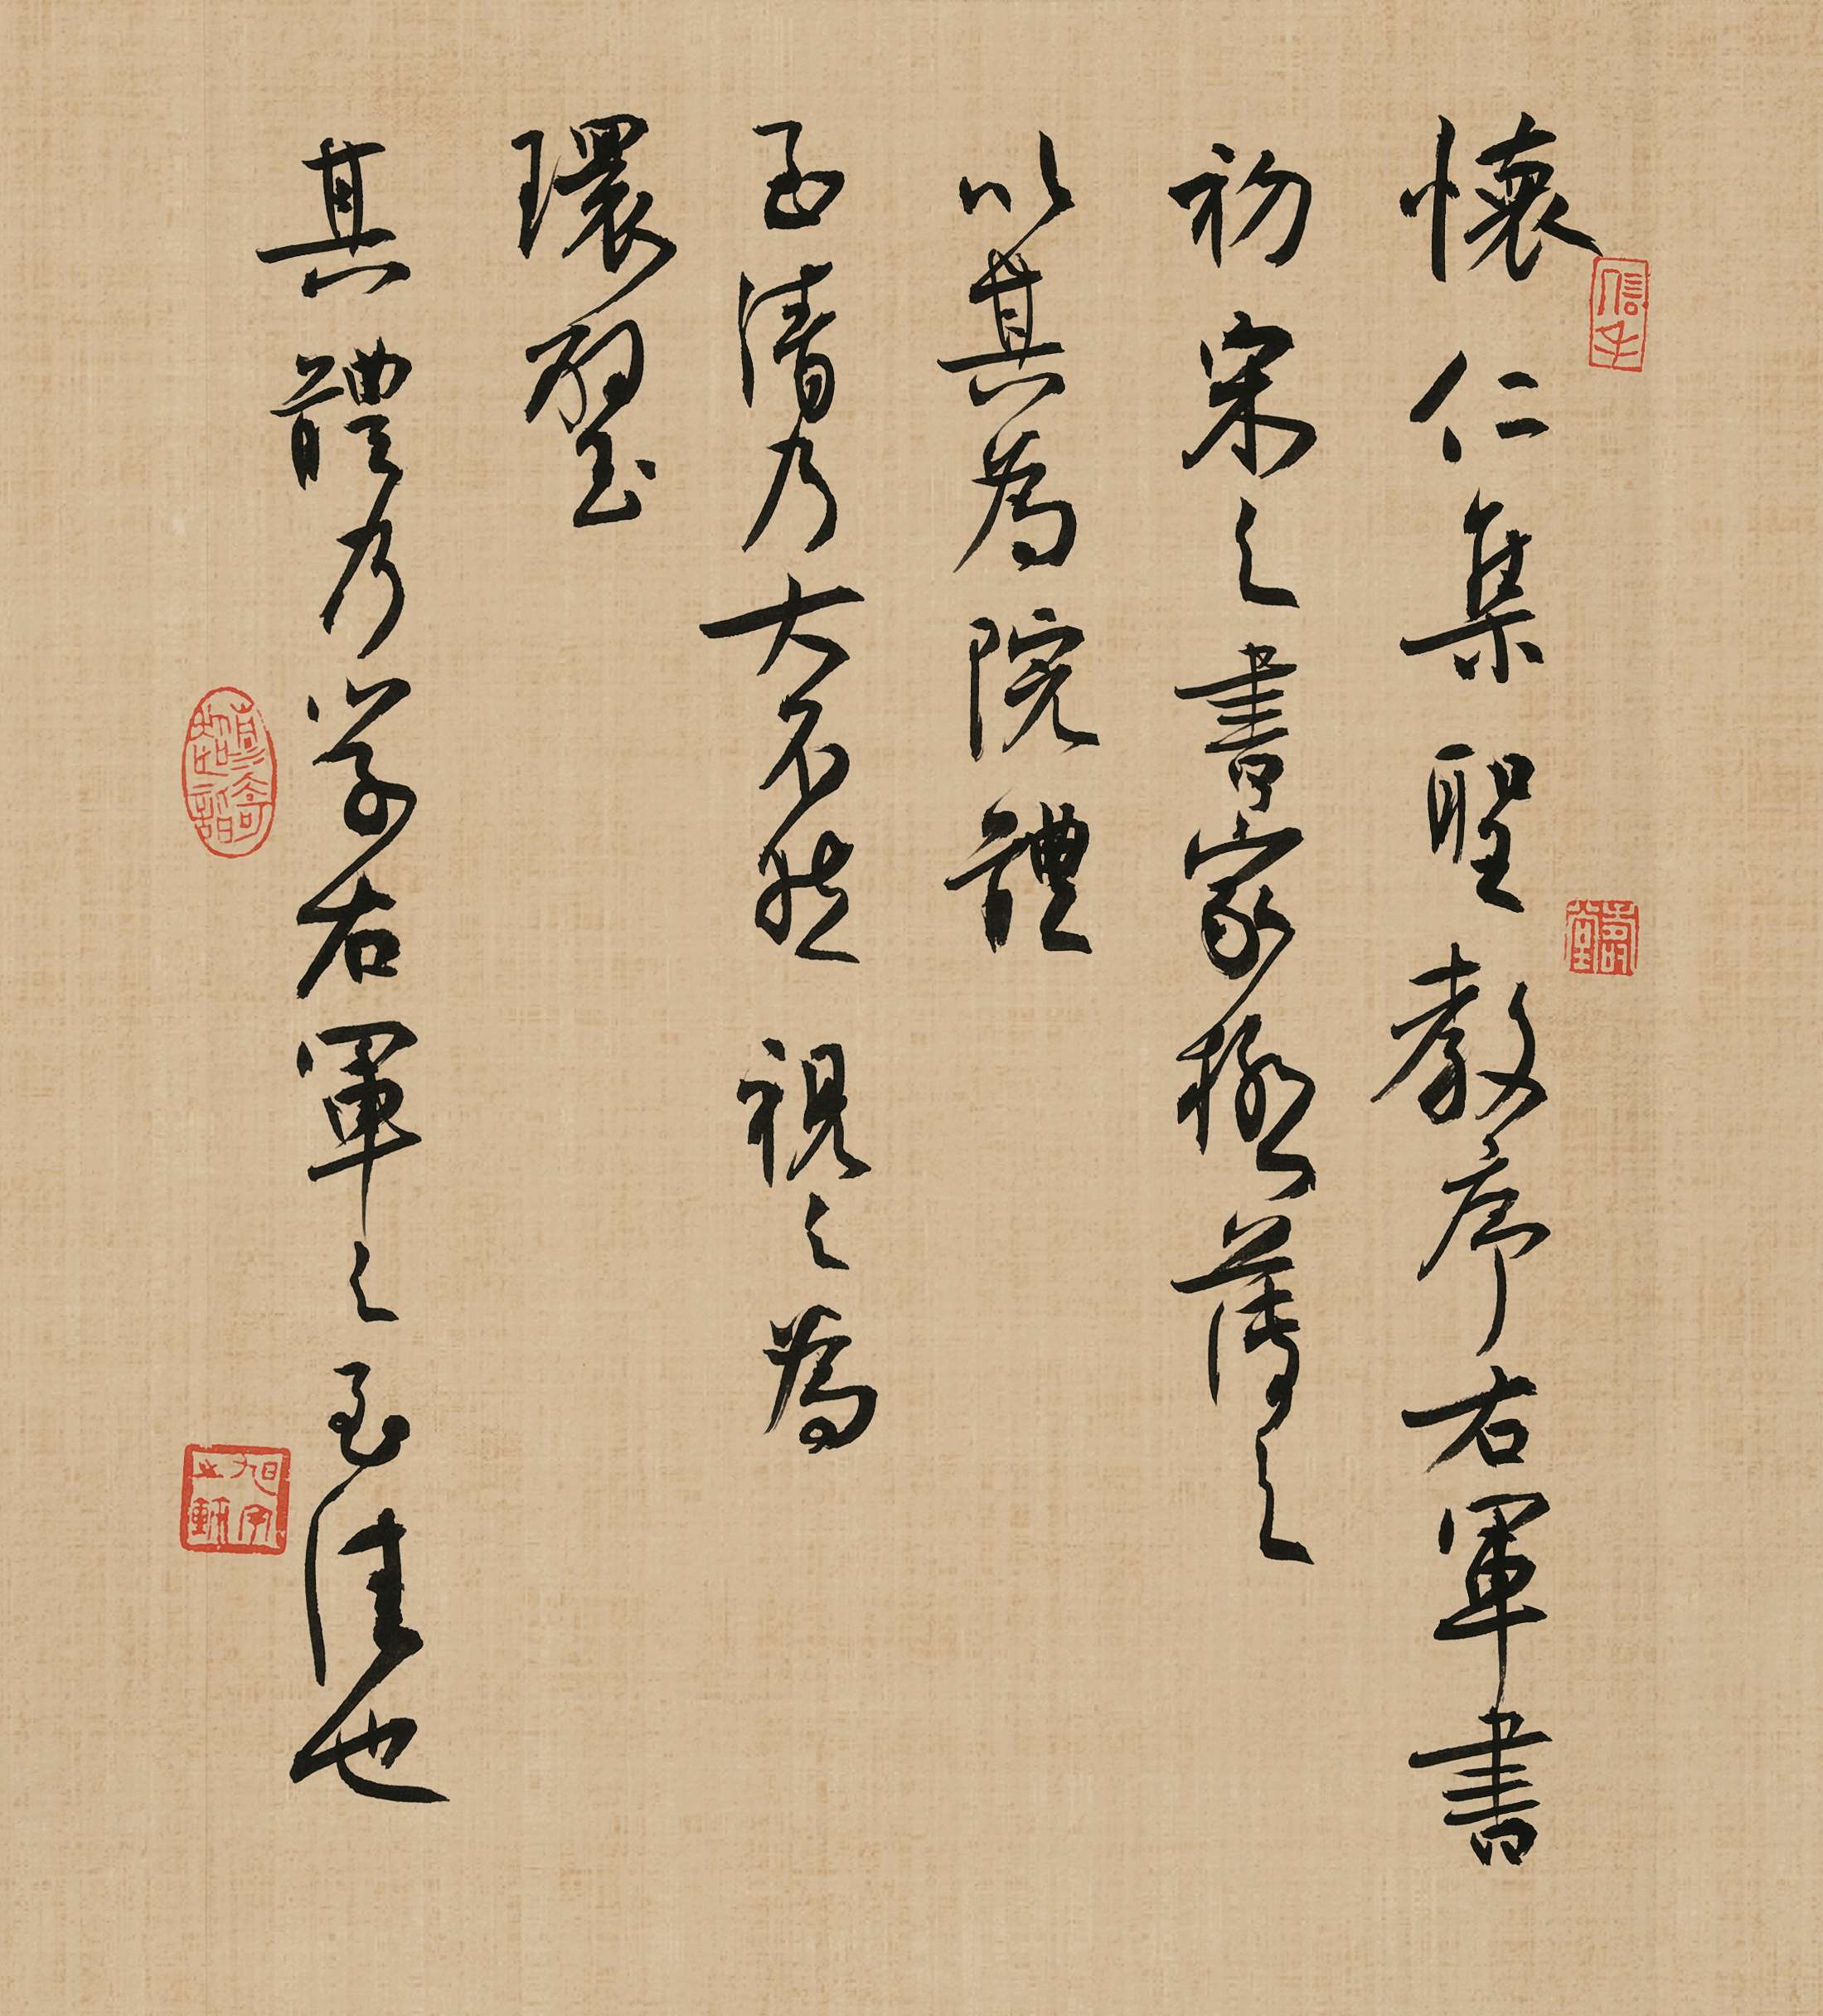 懷仁集聖教序右軍書
初宋之書家極薄之
以其為院體
至清乃大不然視之為
環璧
其體乃學右軍之至佳也